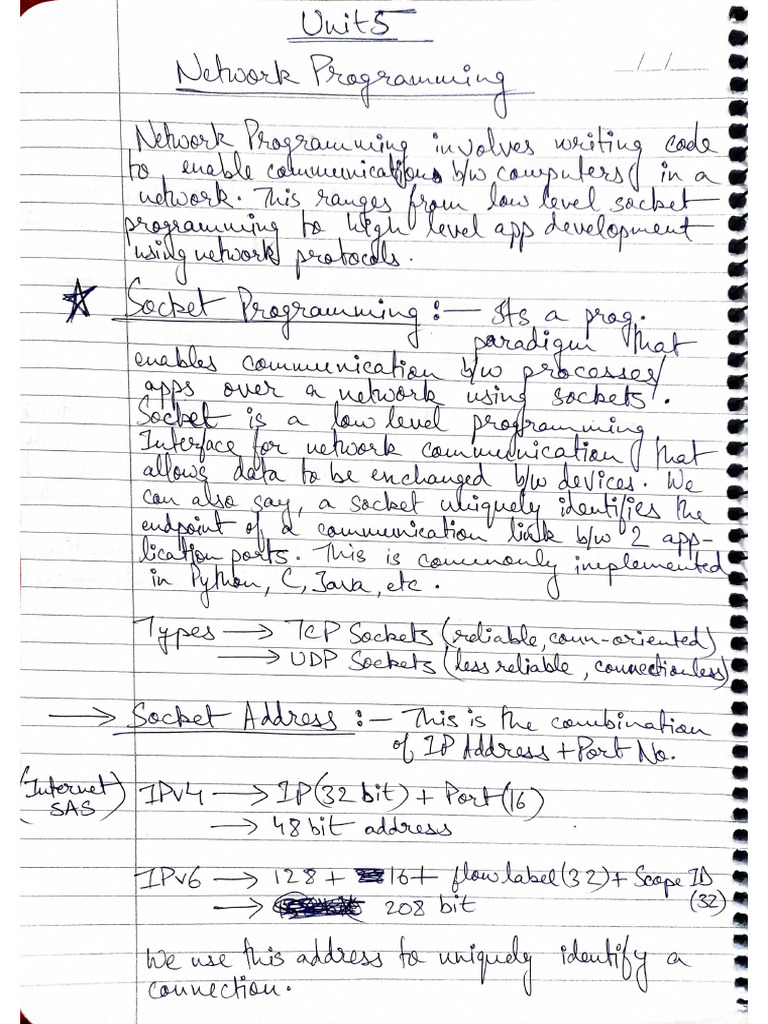 Unit 5
Network Programming
Network Programming involves writing code
to enable communications b/w computers in a
network. This ranges from low level socket
programming to high level app development
using network protocols.
Socket Programming :— Its a prog.
paradigm that
enables communication b/w processes/
apps over a network using sockets.
Socket is a low level programming
Interface for network communication that
allows data to be exchanged b/w devices. We
can also say, a socket uniquely identifies the
endpoint of a communication link b/w 2 app-
lication ports. This is commonly implemented
in Python, C, Java, etc.
Types → TCP Sockets (reliable, conn-oriented)
→ UDP Sockets (less reliable, connectionless)
→ Socket Address :— This is the combination
of IP Address + Port No.
(Internet SAS) IPv4 → IP (32 bit) + Port (16)
→ 48 bit address
IPv6 → 128 + 16 + flow label (32) + Scope ID (32)
→ 208 bit
We use this address to uniquely identify a
connection.